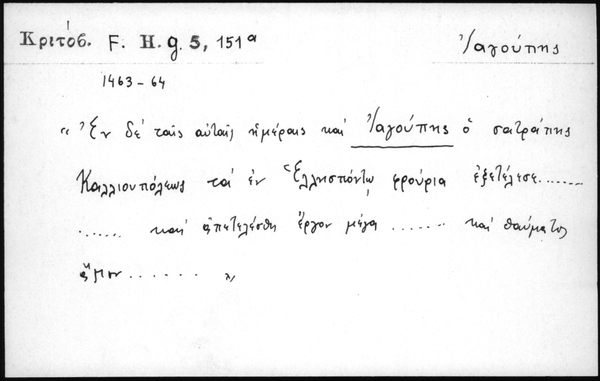 Κριτόβ. F. H. g. 5, 151ª
Ἰαγούπης
1463-64
"Ἐν δέ ταῖς αὐταῖς ἡμέραις καί Ἰαγούπης ὁ σατράπης
Καλλιουπόλεως τά ἐν Ἑλλησπόντῳ φρούρια ἐξετέλεσε........
....... καί ἀπετελέσθη ἔργον μέγα ....... καί θαύματος
ἄξιον ....... "